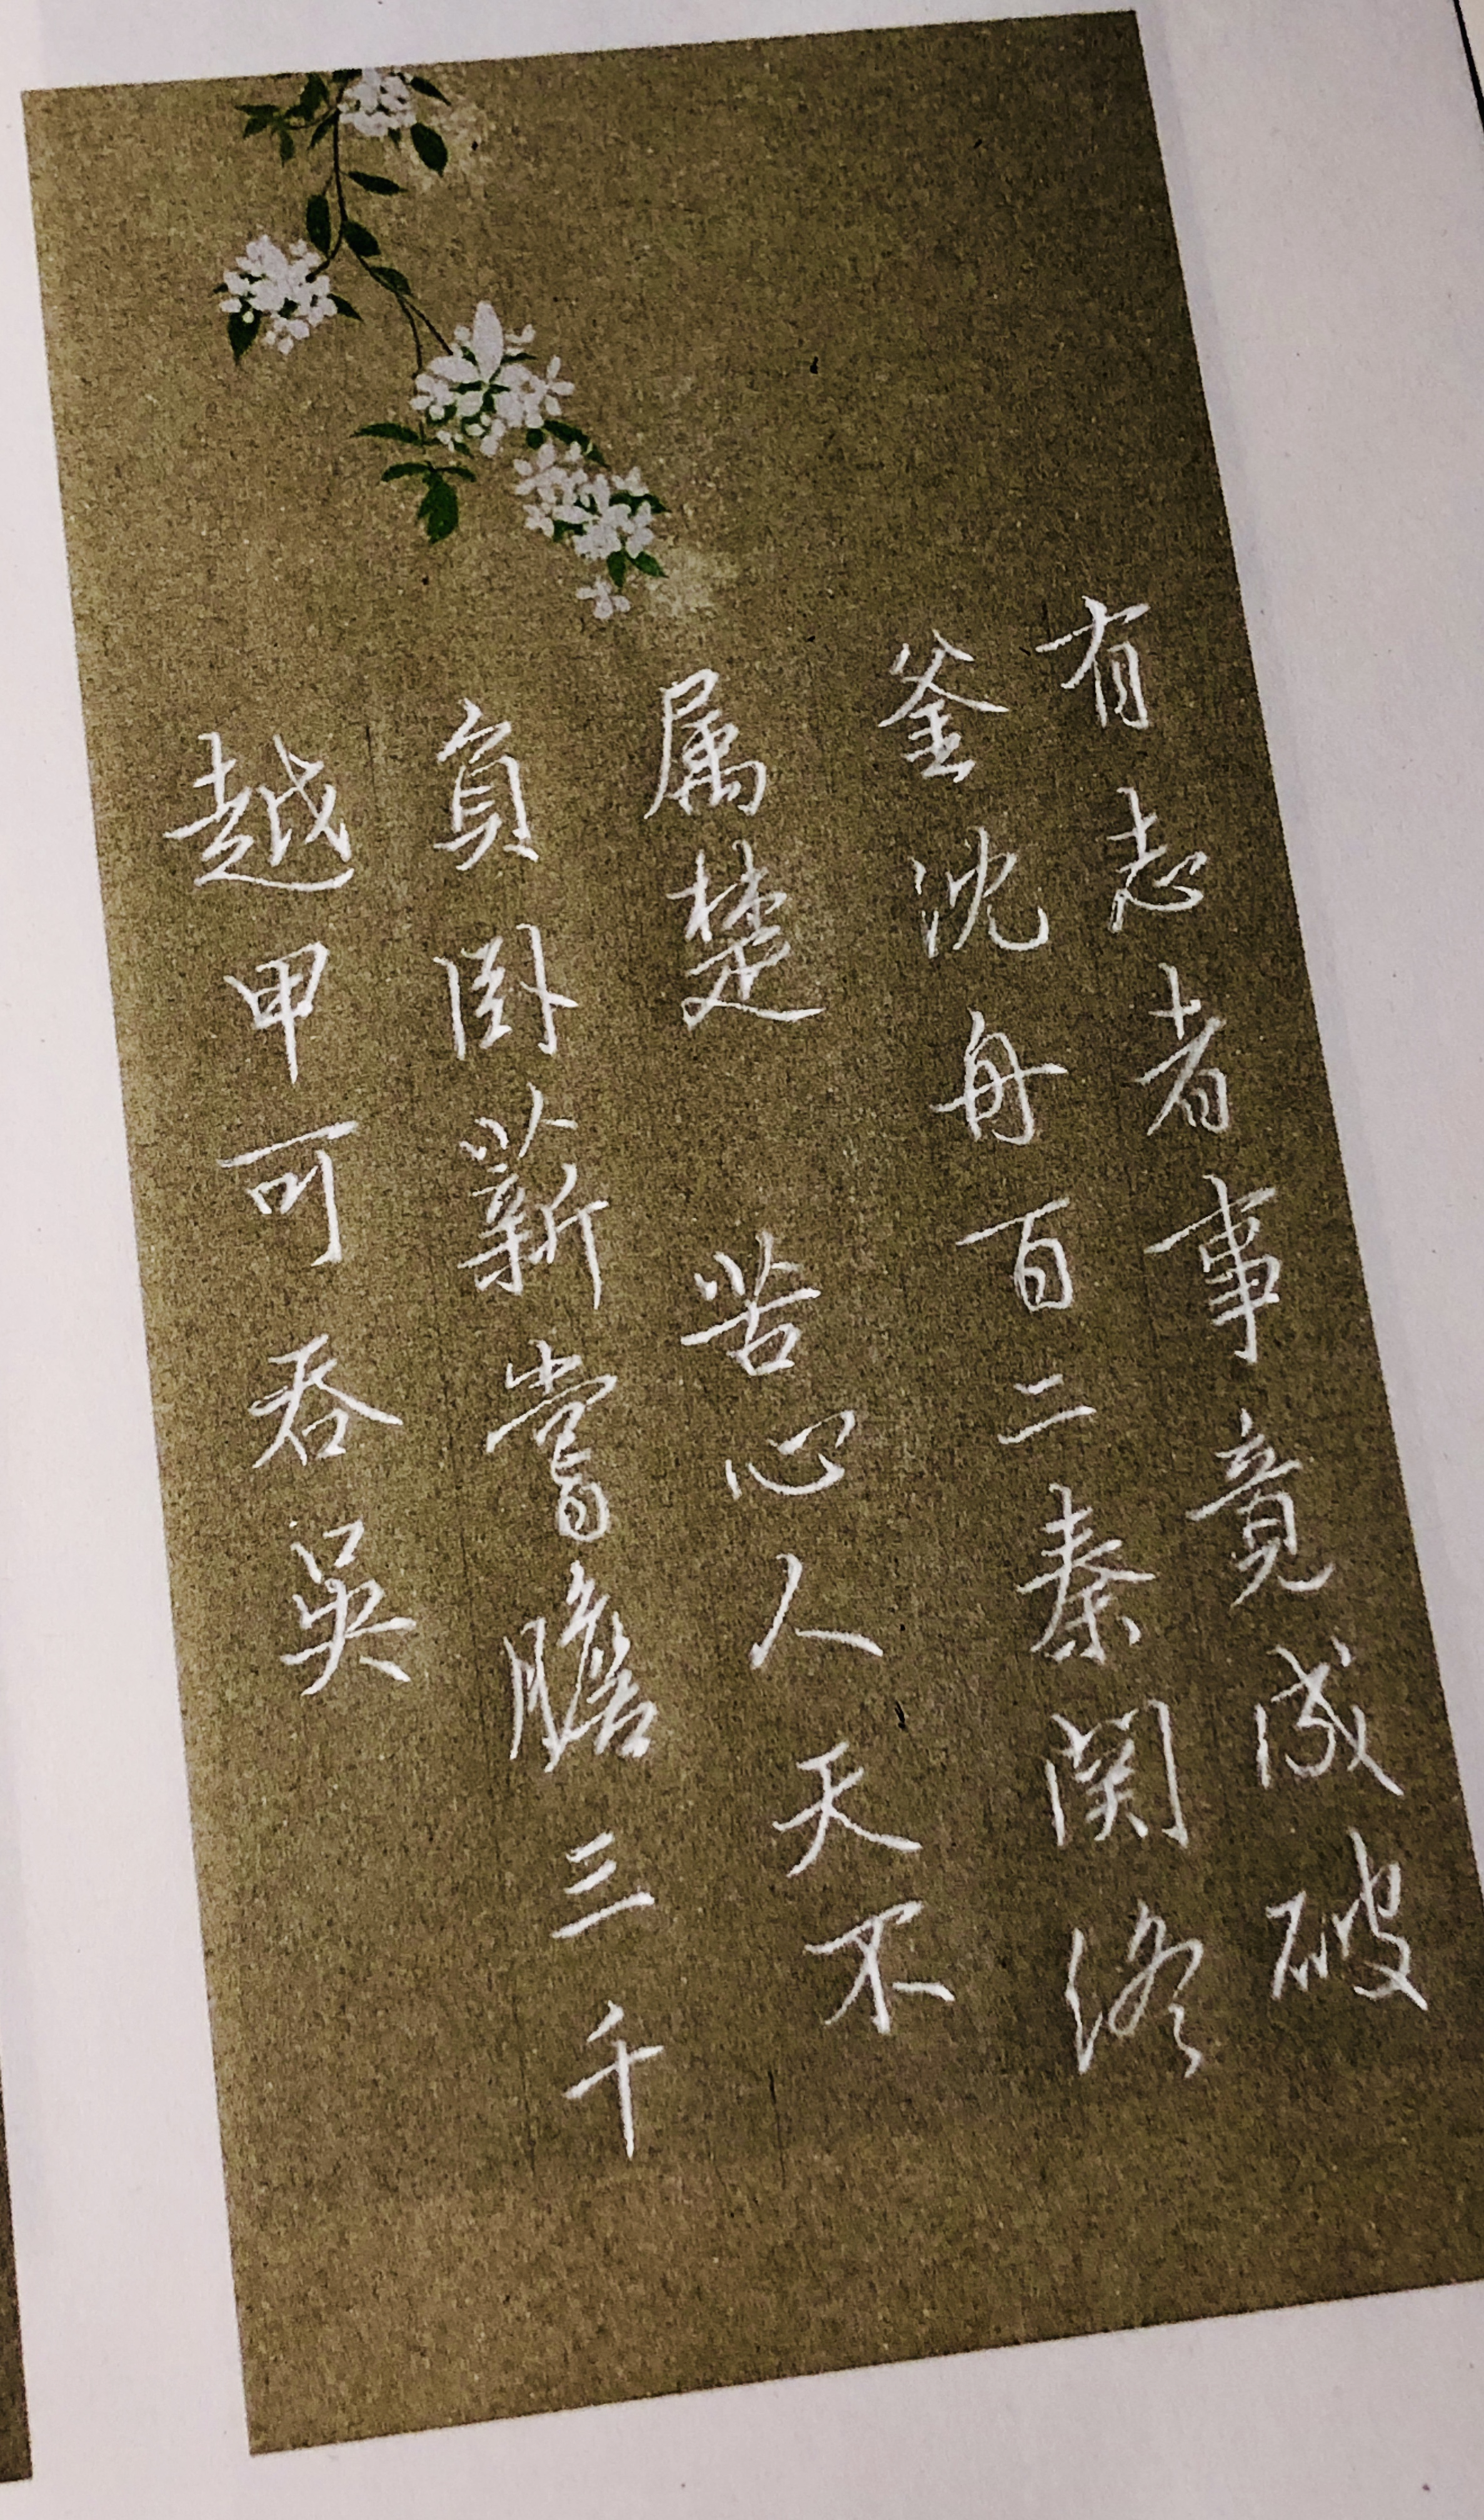 有志者事竟成破
釜沈舟百二秦関终
属楚 苦心人天不
負卧薪嘗膽三千
越甲可吞吴